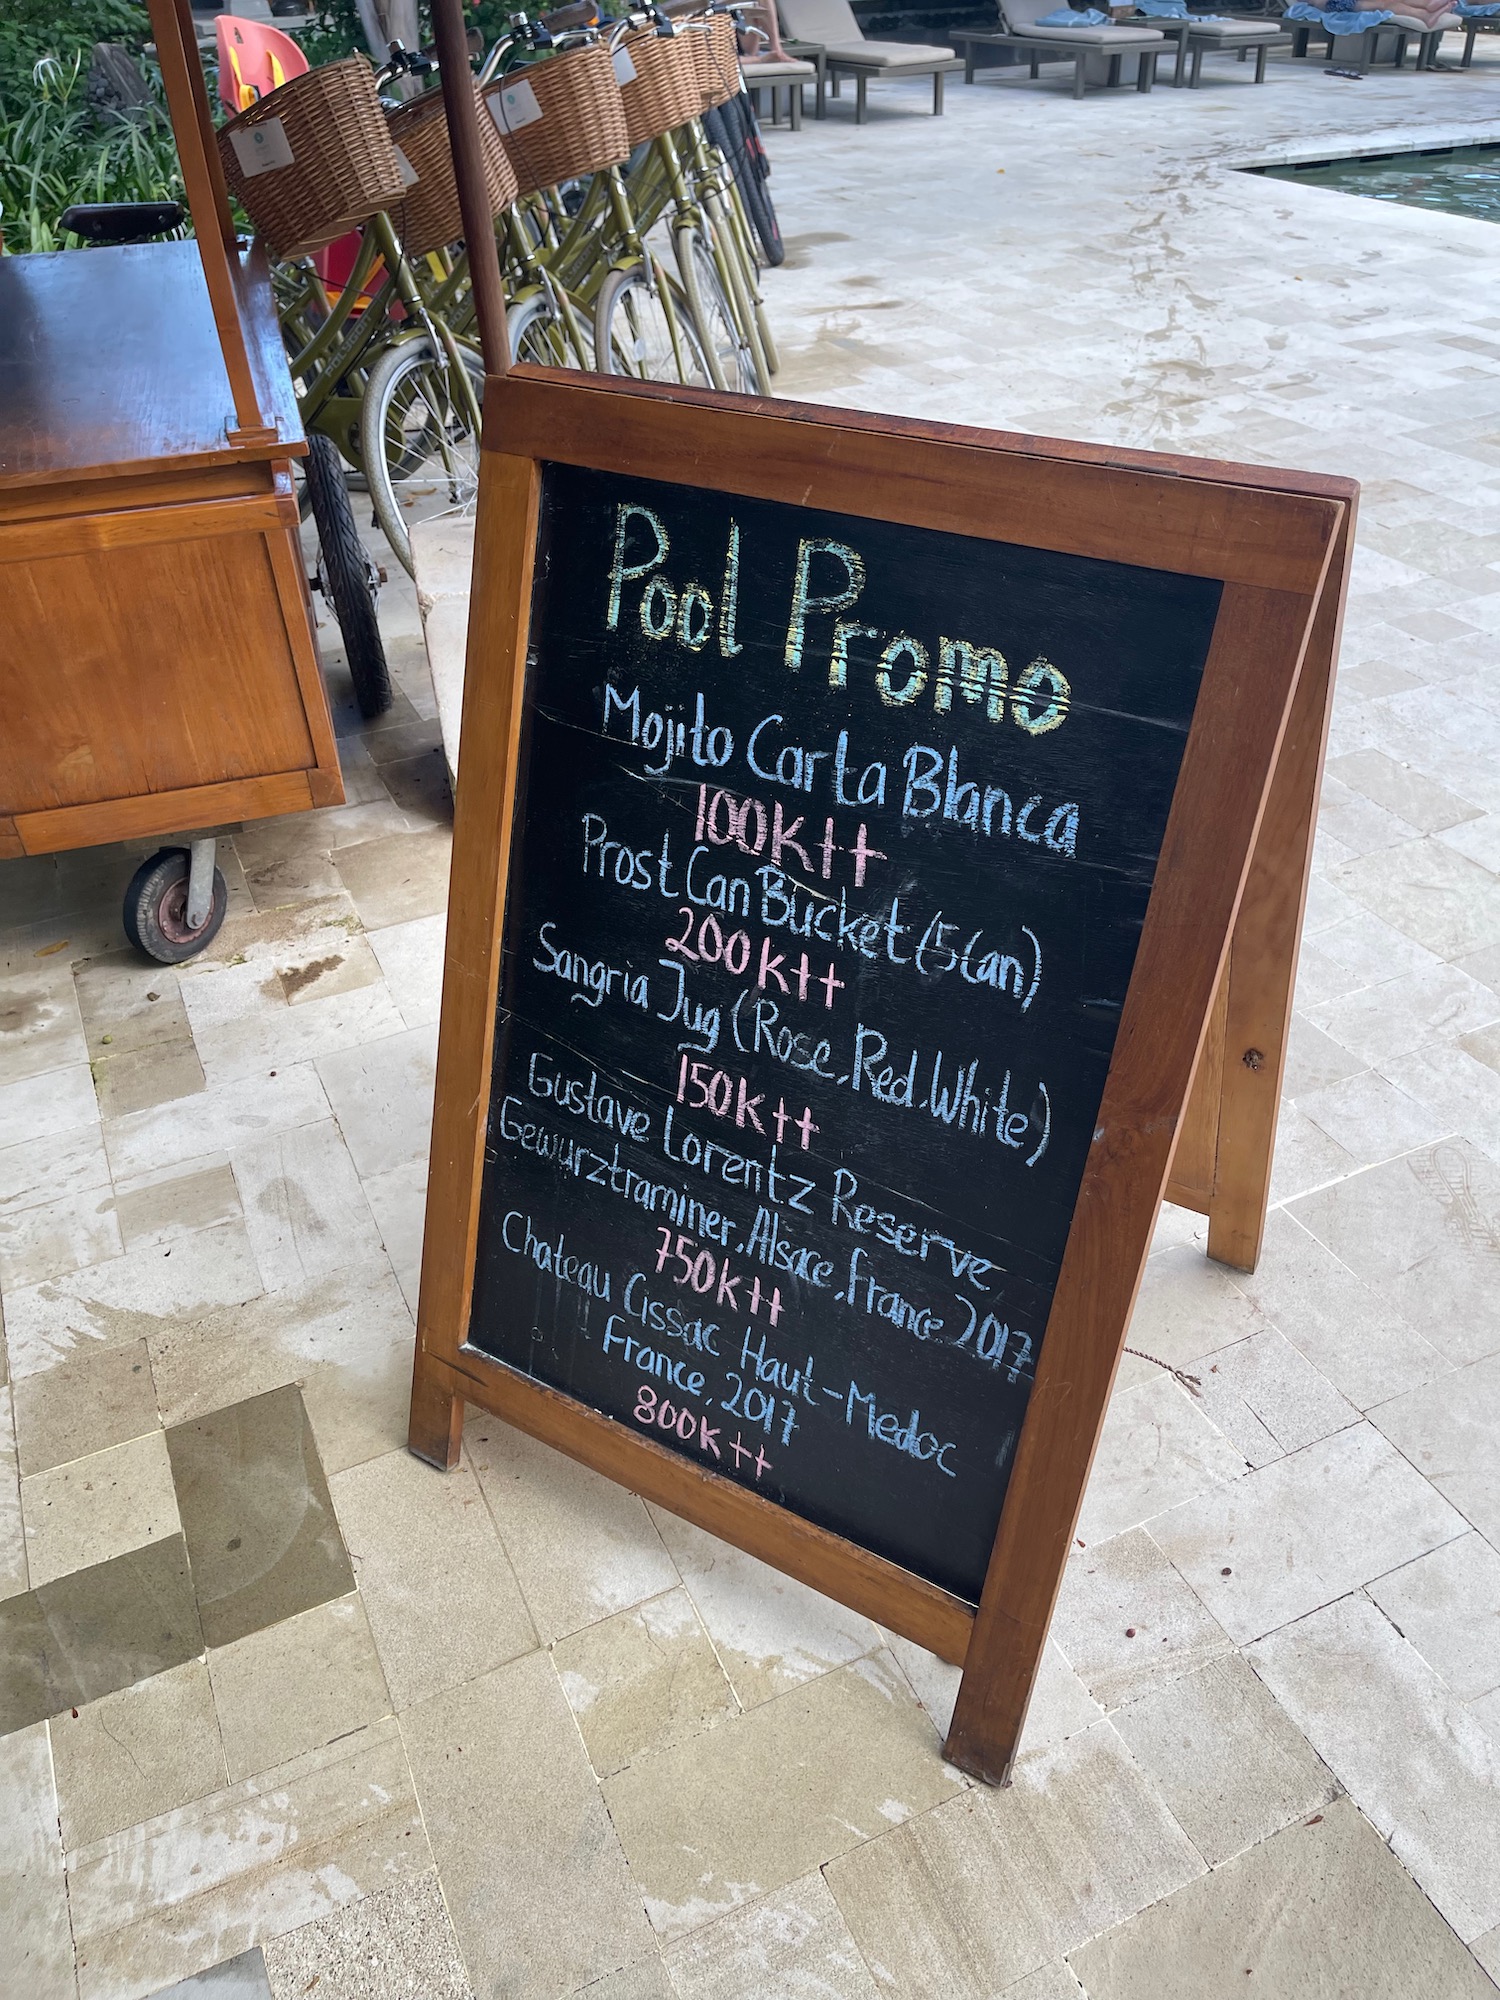 Pool Promo
Mojito Carta Blanca
100K++
Prost Can Bucket (5 Can)
200K++
Sangria Jug (Rose, Red, White)
150K++
Gustave Lorentz Reserve
Gewurztraminer, Alsace, France 2017
750K++
Chateau Cissac Haut-Medoc
France, 2017
800K++
POLYGON